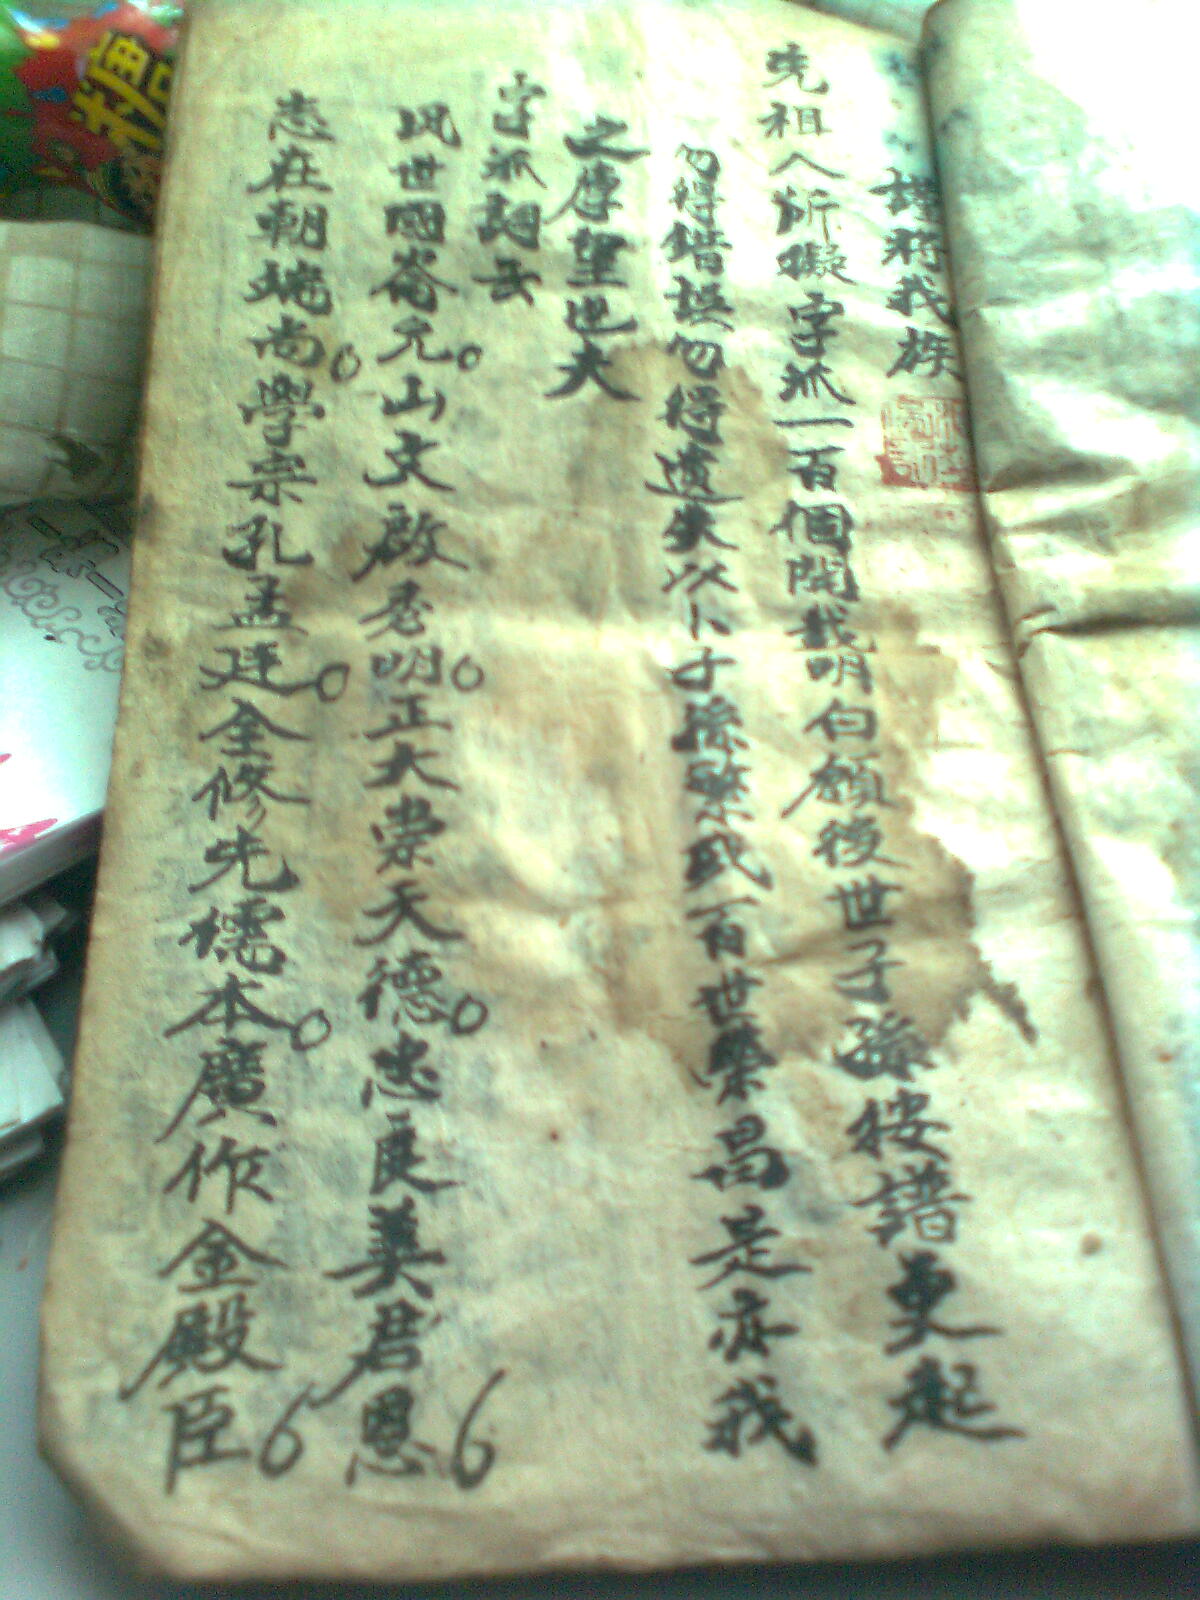 謹將我族
先祖人所擬字派一百個開載明白願後世子孫按譜更起
勿得錯誤勿得遺失以卜子孫繁盛百世榮昌是亦我
之厚望也夫
字派詞云
世國崙元○山文啟君明○正大崇天德○忠良美君恩○
志在朝端尚○學宗孔孟廷○全修先儒本○廣作金殿臣○